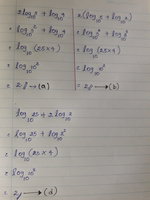 2log₁₀5 + log₁₀4
= log₁₀5² + log₁₀4
= log₁₀(25×4)
= log₁₀10²
= 2 → (a)
2(log₁₀5 + log₁₀2)
= log₁₀5² + log₁₀2²
= log₁₀(25×4)
= log₁₀10²
= 2 → (b)
log₁₀25 + 2log₁₀2
= log₁₀25 + log₁₀2²
= log₁₀(25×4)
= log₁₀10²
= 2 → (d)